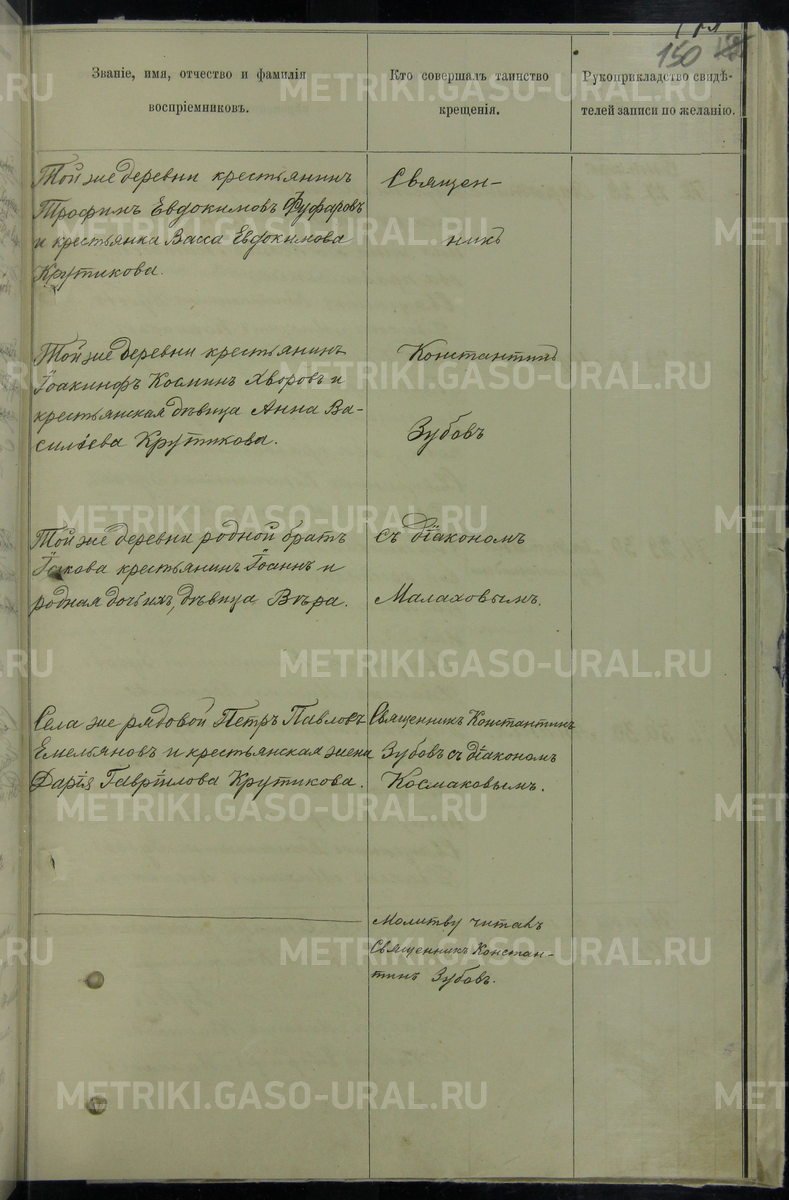 150
Званіе, имя, отчество и фамилія
воспріемниковъ.
Кто совершалъ таинство
крещенія.
Рукоприкладство свидѣ-
телей записи по желанію.
Той же деревни крестьянинъ
Трофимъ Евдокимовъ Фуфаровъ
и крестьянка Васса Евдокимова
Крутикова.
Священ-
никъ
Той же деревни крестьянинъ
Іоакинфъ Космин Хворовъ и
крестьянская дѣвица Анна Ва-
сильева Крутикова.
Константинъ
Зубовъ
Той же деревни родной братъ
Іакова крестьянинъ Іоаннъ и
родная дочь ихъ, дѣвица Вѣра.
съ діакономъ
Малаховымъ.
Села же рядовой Петръ Павловъ
Емельяновъ и крестьянская жена
Дарія Гавріилова Крутикова.
Священникъ Константинъ
Зубовъ съ діакономъ
Космаковымъ.
Молитву читалъ
Священникъ Констан-
тинъ Зубовъ.
METRIKI.GASO-URAL.RU